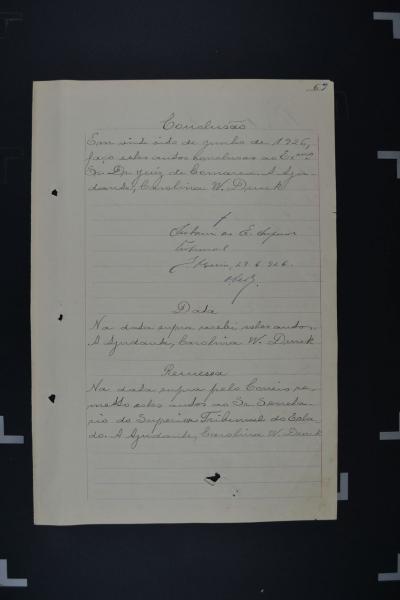 67
Conclusão
Em vinte oito de junho de 1926,
faço estes autos conclusos ao Exmo
Sr. Dr. Juiz de Comarca. A Aju-
dante, Carolina W. Durek
ao E. Superior
Tribunal
29.6.926.
Data
Na data supra recebi estes autos.
A Ajudante, Carolina W. Durek
Remessa
Na data supra pelo Correio re-
metto estes autos ao Sr. Secreta-
rio do Superior Tribunal do Esta-
do. A Ajudante, Carolina W. Durek